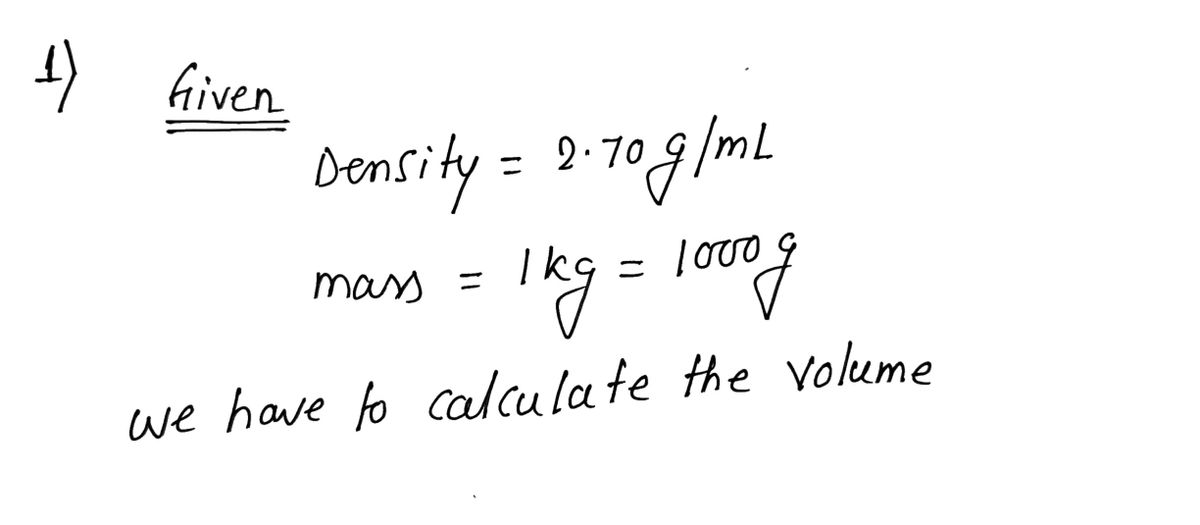 1) Given
Density = 2.70 g/mL
mass = 1kg = 1000 g
we have to calculate the volume